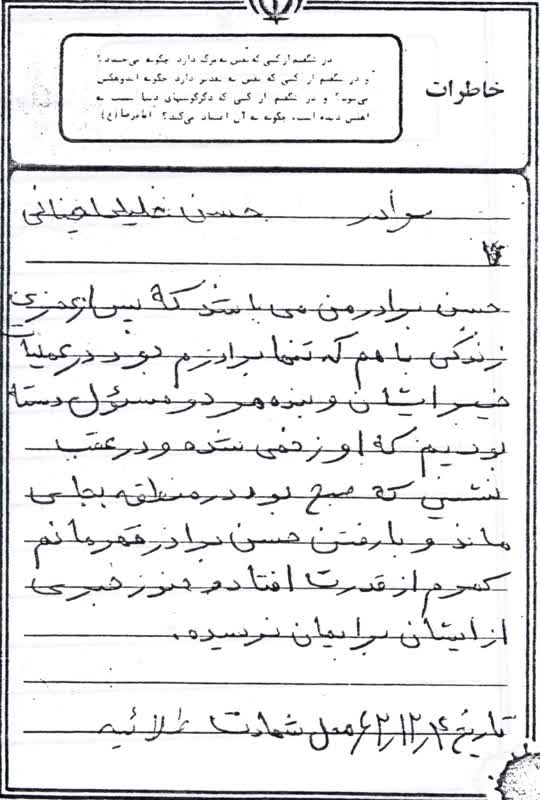 خاطرات
در شگفتم از کسی که یقین به مرگ دارد، چگونه می‌خندد؟
و در شگفتم از کسی که یقین به تقدیر دارد چگونه اندوهگین
می‌شود؟ و در شگفتم از کسی که دگرگونیهای دنیا نسبت به
اهلش دیده است، چگونه به آن اعتماد می‌کند؟ امام رضا (ع)
برادر حسن خلیلی
حسن برادر من می باشد که پس از عمری
زندگی با هم که تنها برادرم بود در عملیات
خیبر ایشان و بنده هر دو مسئول دسته
بودیم که او زخمی شده و در عقب
نشینی که صبح بود در منطقه بجای
ماند و با رفتن حسن برادر قهرمانم
کمرم از قدرت افتاد و هنوز خبری
از ایشان برایمان نرسیده.
تاریخ ۶۲/۱۲/۱۴ محل شهادت طلائیه